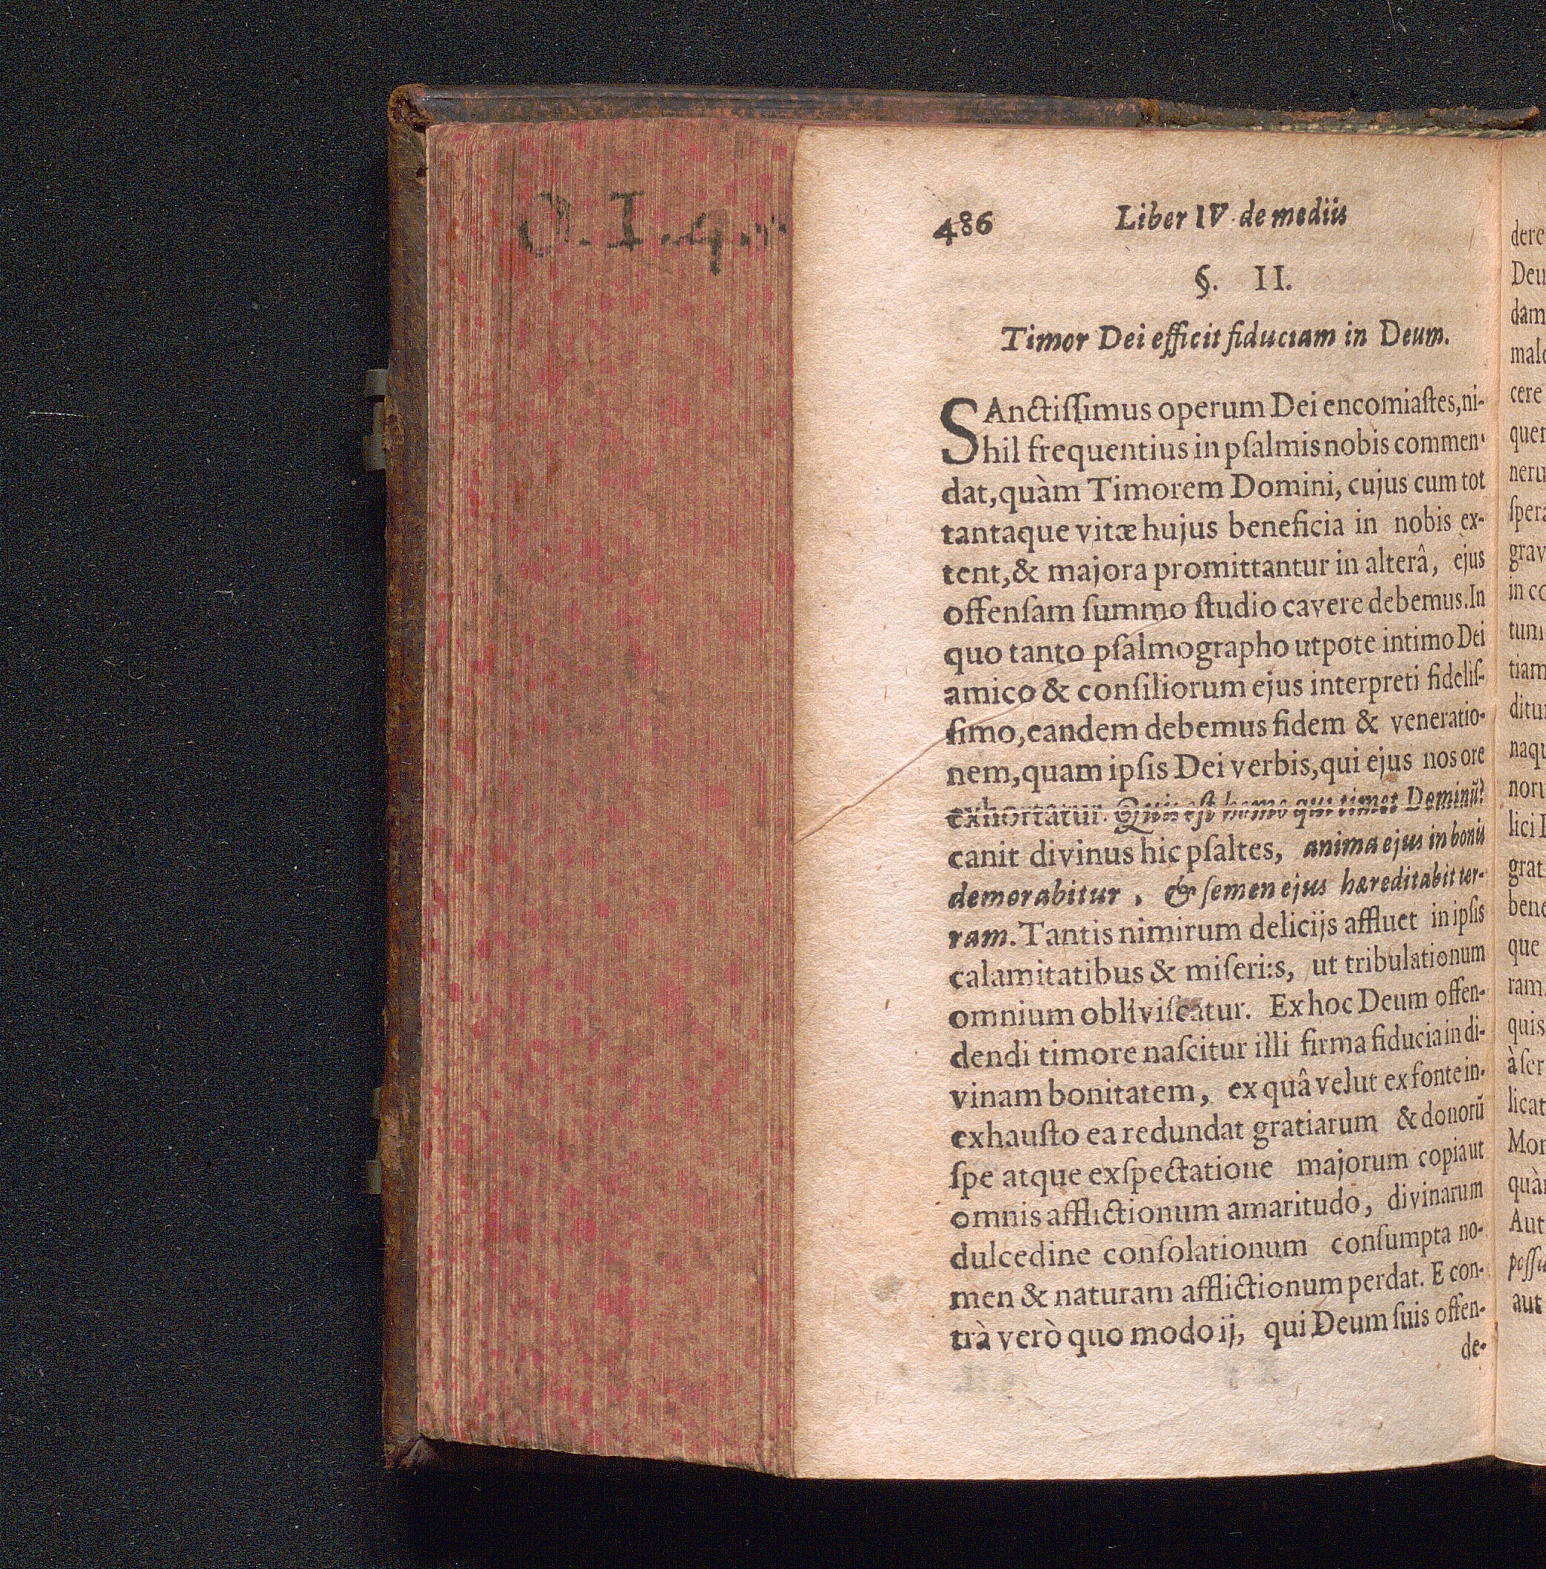 O. I. 4.
486 Liber IV de mediis
§. II.
Timor Dei efficit fiduciam in Deum.
SAnctiſſimus operum Dei encomiaſtes, ni-
hil frequentius in pſalmis nobis commen-
dat, quàm Timorem Domini, cujus cum tot
tantaque vitæ hujus beneficia in nobis ex-
tent, & majora promittantur in alterâ, ejus
offenſam ſummo ſtudio cavere debemus. In
quo tanto pſalmographo utpote intimo Dei
amico & conſiliorum ejus interpreti fideliſ-
ſimo, eandem debemus fidem & veneratio-
nem, quam ipſis Dei verbis, qui ejus nos ore
exhortatur. Quis eſt homo qui timet Dominū?
canit divinus hic pſaltes, anima ejus in bonis
demorabitur, & ſemen ejus hæreditabit ter-
ram. Tantis nimirum delicijs affluet in ipſis
calamitatibus & miſeri:s, ut tribulationum
omnium obliviſcatur. Ex hoc Deum offen-
dendi timore naſcitur illi firma fiducia in di-
vinam bonitatem, ex quâ velut ex fonte in-
exhauſto ea redundat gratiarum & donorū
ſpe atque exſpectatione majorum copia ut
omnis afflictionum amaritudo, divinarum
dulcedine conſolationum conſumpta no-
men & naturam afflictionum perdat. E con-
trà verò quo modo ij, qui Deum ſuis offen-
de-
dere
Deu
dam
malo
cere
quer
neru
ſpera
grav
in co
tum
tiam
ditur
naqu
noru
lici I
grat
bene
que
ram.
quis
à ſer
licat
Mor
quàm
Aut
poſſu
aut